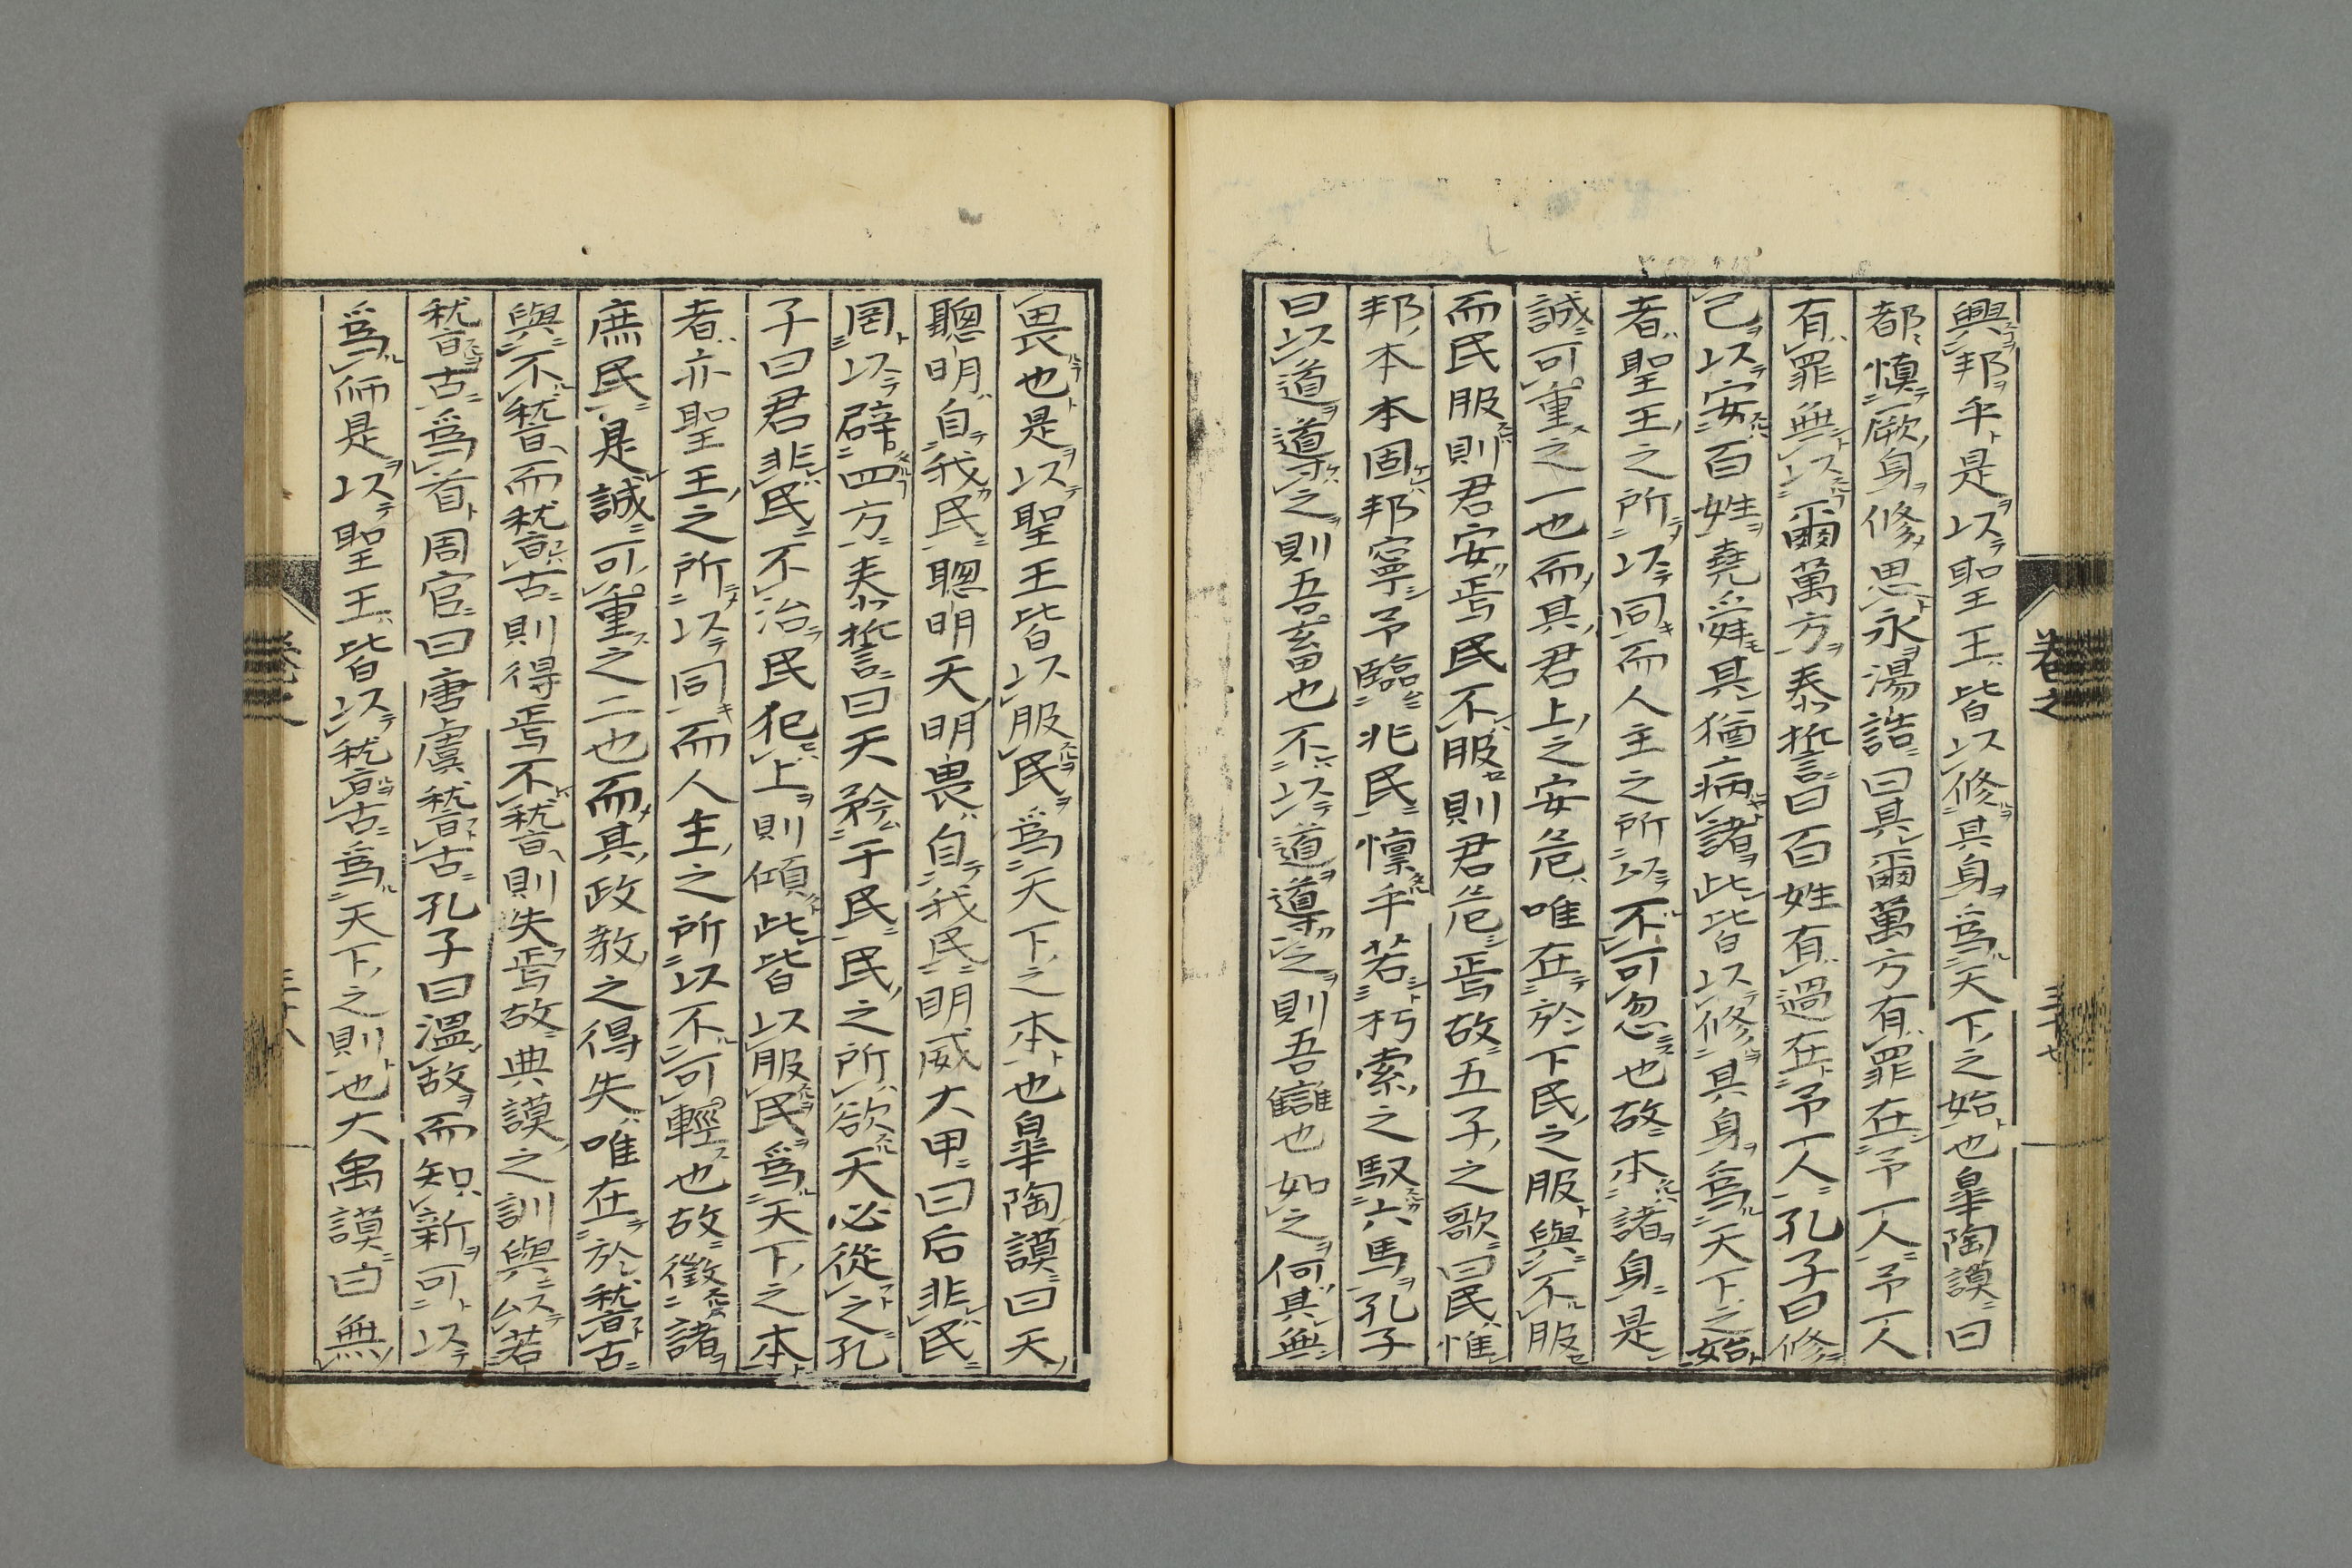 興邦乎是以聖王皆以修其身爲天下之始也臯陶謨曰
都愼厥身修思永湯誥曰其爾萬方有罪在予一人予一人
有罪無以爾萬方泰誓曰百姓有過在予一人孔子曰修
己以安百姓堯舜其猶病諸此皆以修其身爲天下之始
者聖王之所以同而人主之所以不可忽也故本諸身是
誠可重之一也而其君上之安危唯在於下民之服與不服
而民服則君安焉民不服則君危焉故五子之歌曰民惟
邦本本固邦寧予臨兆民懍乎若朽索之馭六馬孔子
曰以道導之則吾畜也不以道導之則吾讎也如之何其無
畏也是以聖王皆以服民爲天下之本也臯陶謨曰天
聰明自我民聰明天明畏自我民明威大甲曰后非民
罔以辟四方泰誓曰天矜于民民之所欲天必從之孔
子曰君非民不治民犯上則傾此皆以服民爲天下之本
者亦聖王之所以同而人主之所以不可輕也故徵諸
庶民是誠可重之二也而其政教之得失唯在於稽古
與不稽而稽古則得焉不稽則失焉故典謨之訓與以若
稽古爲首周官曰唐虞稽古孔子曰溫故而知新可以
爲師是以聖王皆以稽古爲天下之則也大禹謨曰無
卷之
三十七
三十八